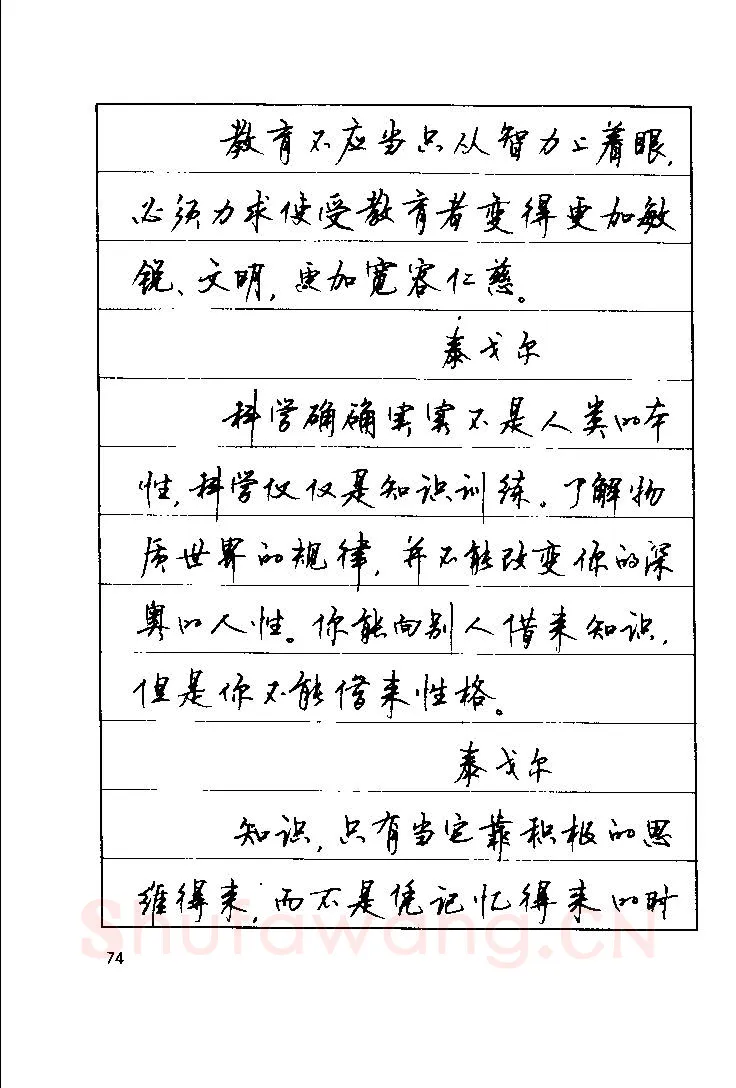 教育不应当只从智力上着眼，
必须力求使受教育者变得更加敏
锐、文明，更加宽容仁慈。
泰戈尔
科学确确实实不是人类的本
性，科学仅仅是知识训练。了解物
质世界的规律，并不能改变你的深
奥的人性。你能向别人借来知识，
但是你不能借来性格。
泰戈尔
知识，只有当它靠积极的思
维得来，而不是凭记忆得来的时
Shufawang.CN
74